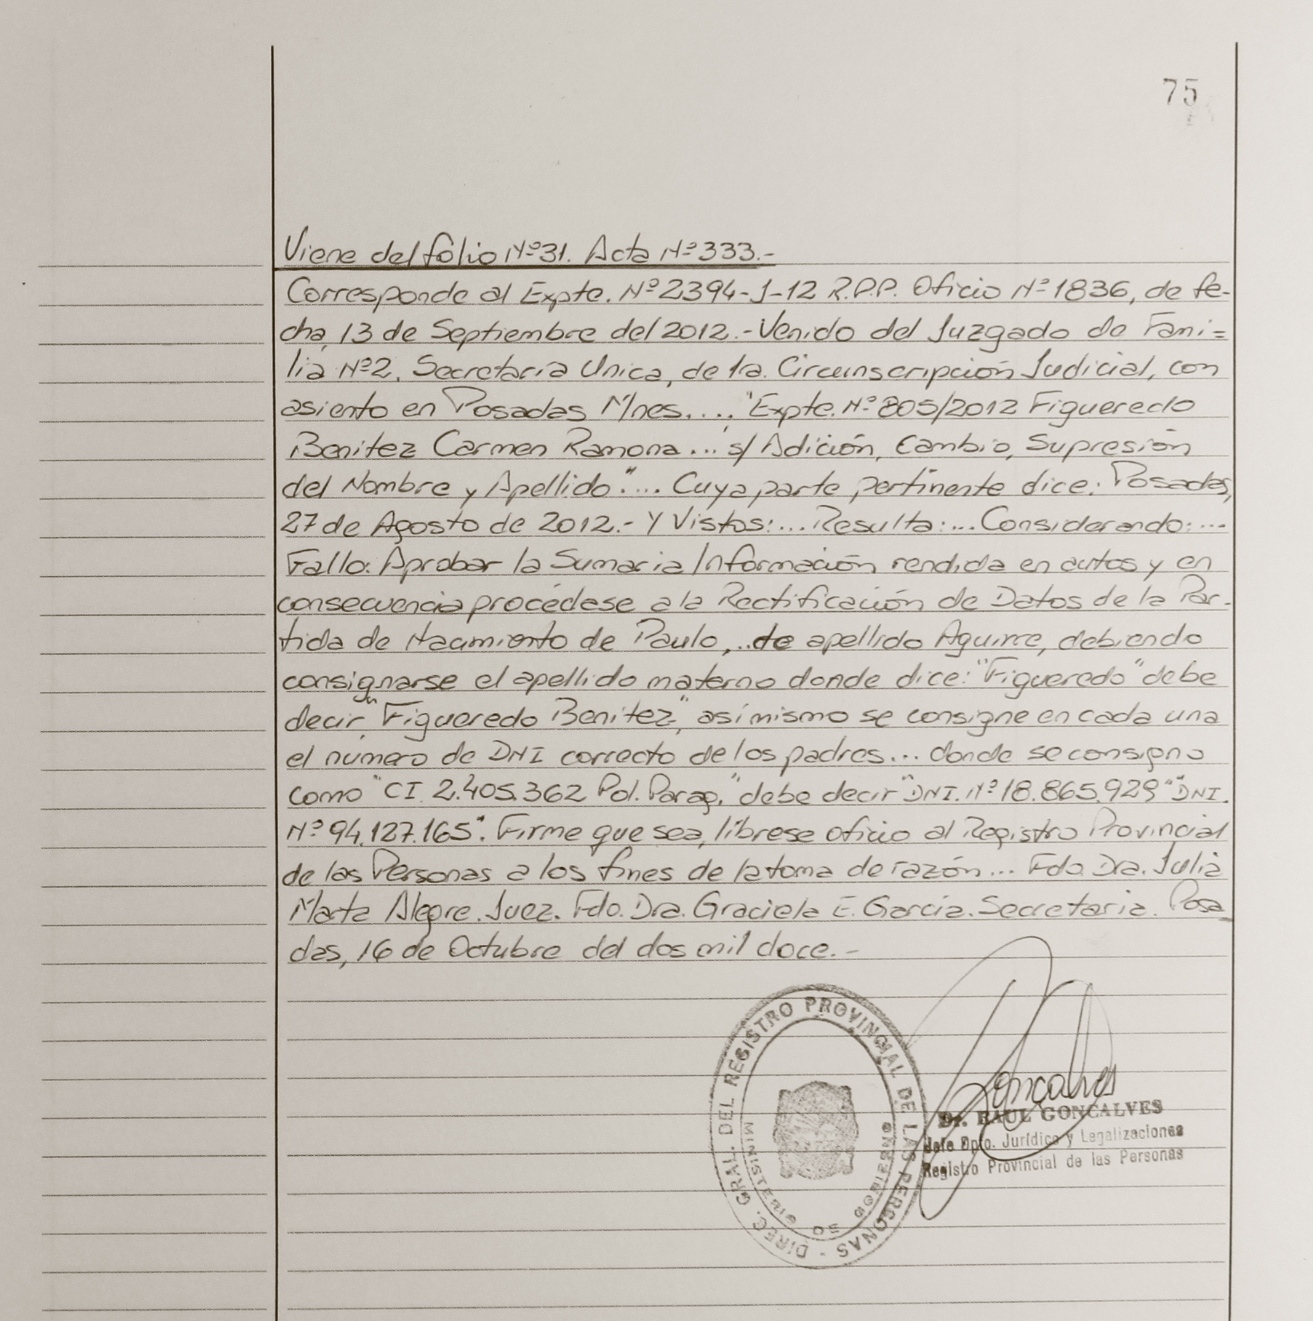 75
Viene del folio Nº31. Acta Nº333.-
Corresponde al Expte. Nº2394-J-12 R.P.P. Oficio Nº1836, de fe-
cha, 13 de Septiembre del 2012.- Venido del Juzgado de Fami=
lia Nº2, Secretaria Unica, de 1ra. Circunscripción Judicial, con
asiento en Posadas Mnes.... "Expte. Nº 805/2012 Figueredo
Benitez Carmen Ramona... s/ Adición, Cambio, Supresión
del Nombre y Apellido"... Cuya parte pertinente dice: Posadas,
27 de Agosto de 2012.- Y Vistos:... Resulta:... Considerando:...
Fallo: Aprobar la Sumaria Información rendida en autos y en
consecuencia procédese a la Rectificación de Datos de la Par-
tida de Nacimiento de Paulo,.. de apellido Aguirre, debiendo
consignarse el apellido materno donde dice: "Figueredo" debe
decir "Figueredo Benitez", asímismo se consigne en cada una
el número de DNI correcto de los padres... donde se consigno
como "CI. 2.405.362 Pol. Parag." debe decir "DNI. Nº18.865.929" "DNI.
Nº 94.127.165". Firme que sea, líbrese oficio al Registro Provincial
de las Personas a los fines de la toma de razón... Fdo. Dra. Julia
Marta Alegre. Juez. Fdo. Dra. Graciela E. García. Secretaria. Posa
das, 16 de Octubre del dos mil doce.-
DIREC. GRAL. DEL REGISTRO PROVINCIAL DE LAS PERSONAS -
MINISTERIO DE GOBIERNO
Goncalves
Dr. RAUL GONCALVES
Jefe Dpto. Jurídico y Legalizaciones
Registro Provincial de las Personas